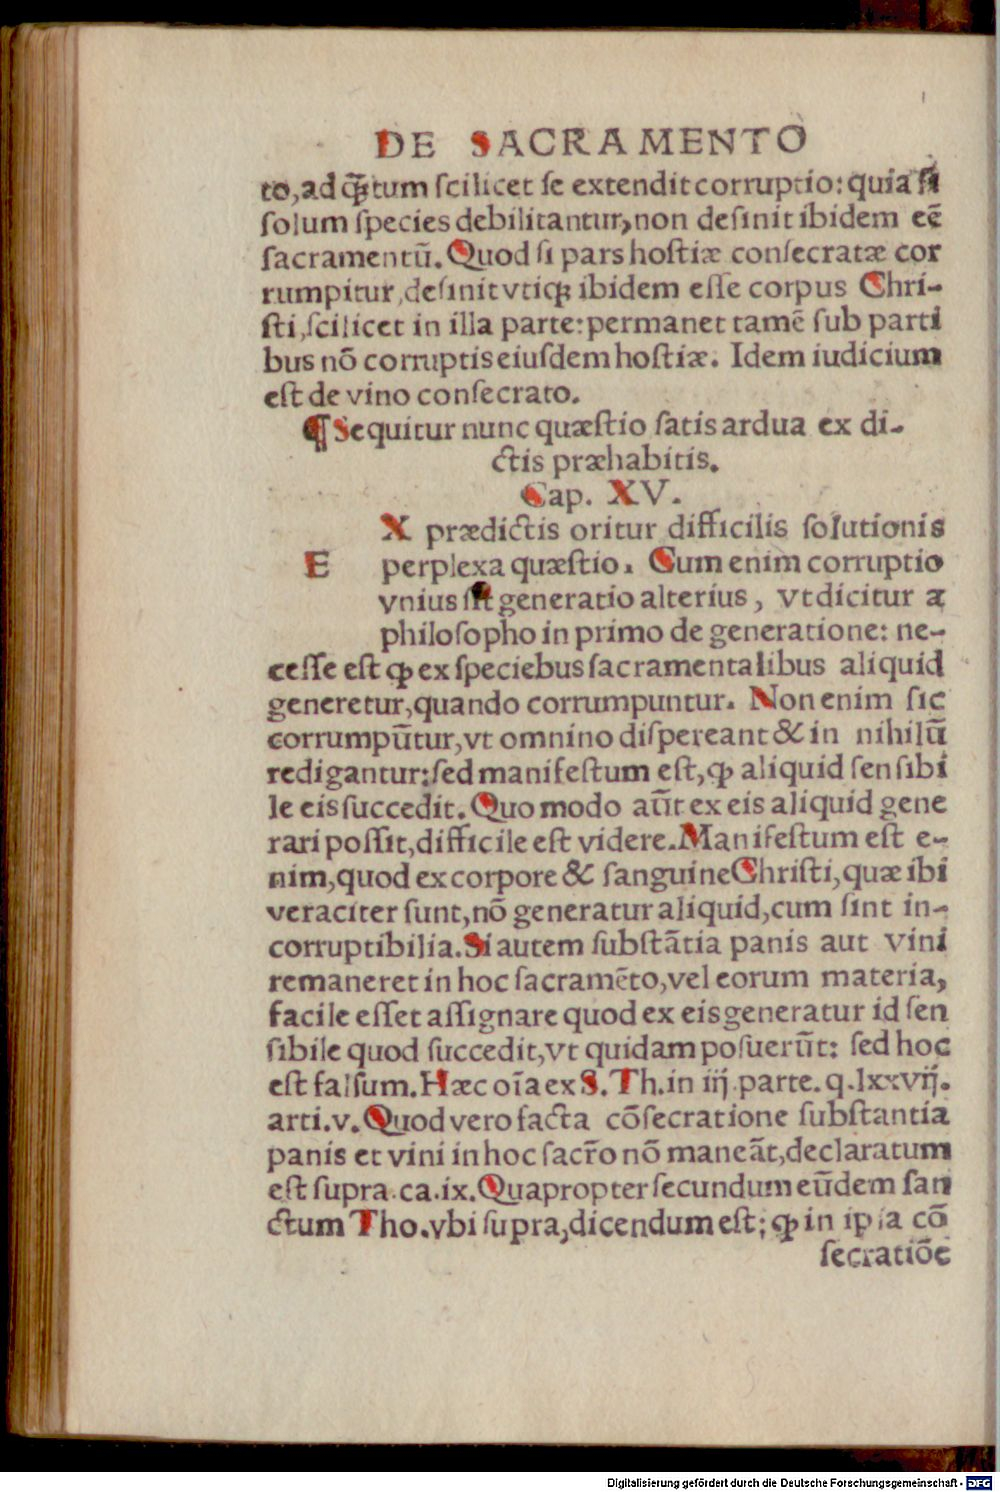 DE SACRAMENTO
to, ad qꝫtum ſcilicet ſe extendit corruptio: quia ſi
ſolum ſpecies debilitantur, non deſinit ibidem eē
ſacramentū. Quod ſi pars hoſtiæ conſecratæ cor
rumpitur, deſinit vtiqꝫ ibidem eſſe corpus Chri-
ſti, ſcilicet in illa parte: permanet tamē ſub parti
bus nō corruptis eiuſdem hoſtiæ. Idem iudicium
eſt de vino conſecrato.
¶ Sequitur nunc quæſtio ſatis ardua ex di-
ctis præhabitis.
Cap. XV.
X prædictis oritur difficilis ſolutionis
E perplexa quæſtio. Cum enim corruptio
vnius ſit generatio alterius, vt dicitur a
philoſopho in primo de generatione: ne-
ceſſe eſt ꝙ ex ſpeciebus ſacramentalibus aliquid
generetur, quando corrumpuntur. Non enim ſic
corrumpūtur, vt omnino diſpereant & in nihilū
redigantur: ſed manifeſtum eſt, ꝙ aliquid ſenſibi
le eis ſuccedit. Quo modo aūt ex eis aliquid gene
rari poſſit, difficile eſt videre. Manifeſtum eſt e-
nim, quod ex corpore & ſanguine Chriſti, quæ ibi
veraciter ſunt, nō generatur aliquid, cum ſint in-
corruptibilia. Si autem ſubſtātia panis aut vini
remaneret in hoc ſacramēto, vel eorum materia,
facile eſſet aſſignare quod ex eis generatur id ſen
ſibile quod ſuccedit, vt quidam poſuerūt: ſed hoc
eſt falſum. Hæc oīa ex S. Th. in iij. parte. q. lxxvij.
arti. v. Quod vero facta cōſecratione ſubſtantia
panis et vini in hoc ſacr̄o nō maneāt, declaratum
eſt ſupra. ca. ix. Quapropter ſecundum eūdem ſan
ctum Tho. vbi ſupra, dicendum eſt; ꝙ in ipſa cō
ſecratiōe
Digitalisierung gefördert durch die Deutsche Forschungsgemeinschaft - DFG